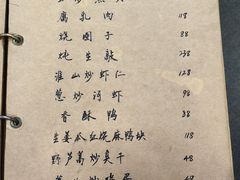 腐乳肉 118
烧圈子 88
炖生敲 238
淮山炒虾仁 128
葱㸆河虾 98
香酥鸭 118
生姜瓜红烧麻鸭块 118
野芦蒿炒臭干 48